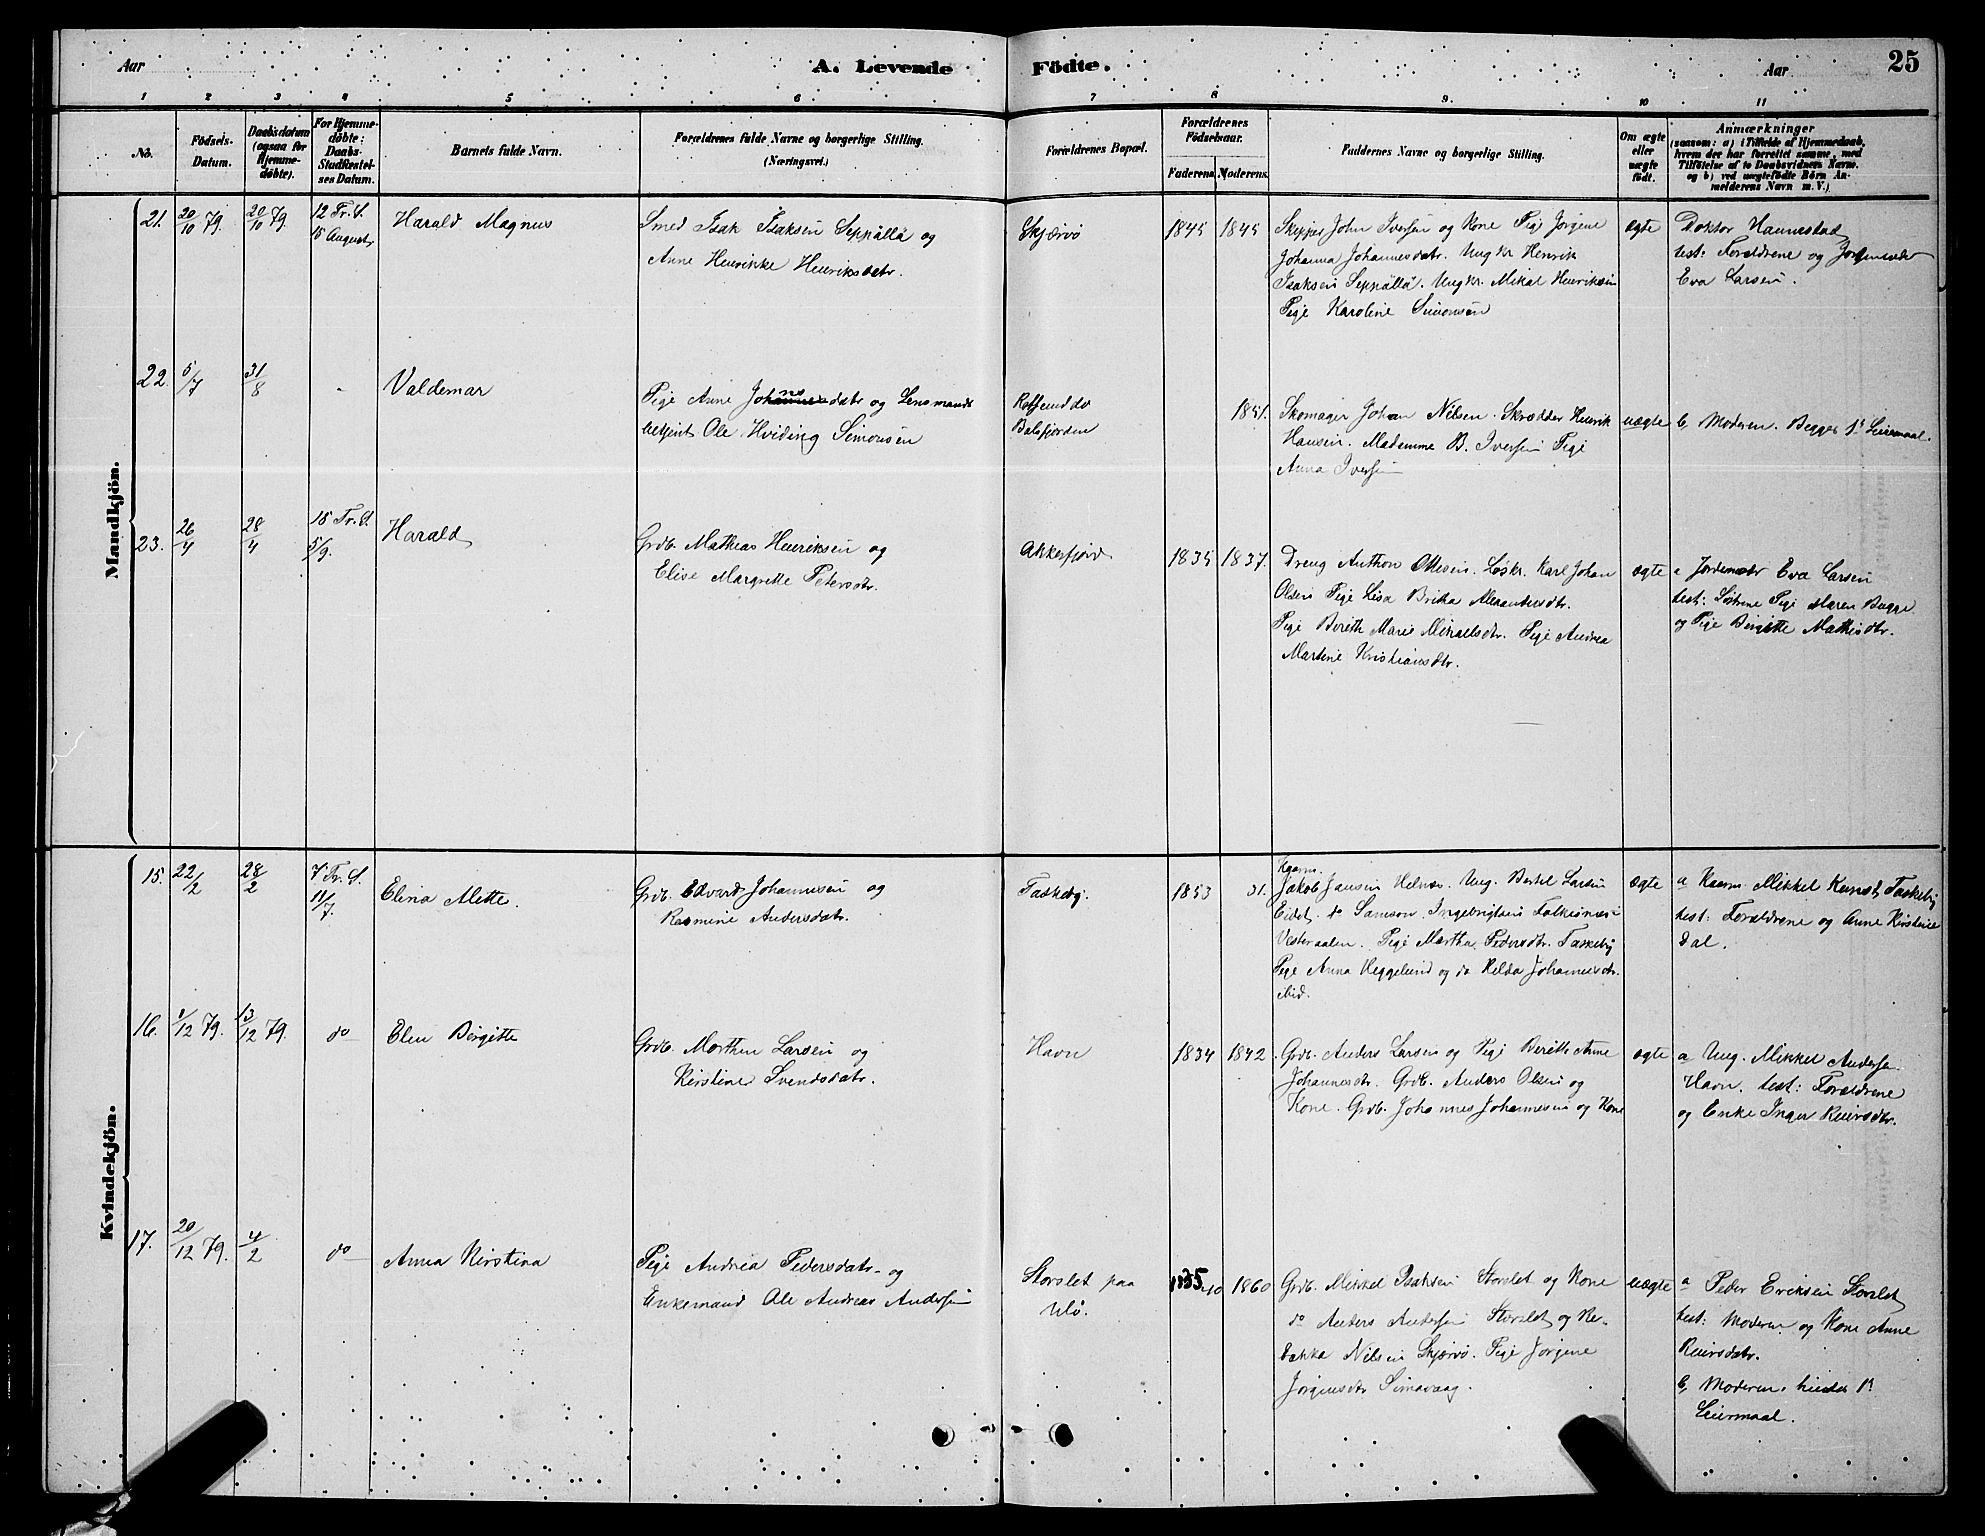 Aar A. Levende Födte. Aar 25
1 2 3 4 5 6 7 8 9. 10 11
No. Födsels-Datum. Daabsdatum (ogsaa for Hjemme-döbte). For Hjemme-döbte: Daabs-Stadfæstel-ses Datum. Barnets fulde Navn. Forældrenes fulde Navne og borgerlige Stilling. (Næringsvei.) Forældrenes Bopæl. Forældrenes Födselsaar. Faderens. Moderens. Faddernes Navne og borgerlige Stilling. Om ægte eller uægte födt. Anmærkninger (saasom: a) i Tilfælde af Hjemmedaab, hvem der har forrettet samme, med Tilföielse af to Daabsvidners Navne, og b) ved uægtefödte Börn An-melderens Navn m. V.)
Mandkjön.
21. 20/10 79. 20/10 79 12 Tr. S. 15 August Harald Magnus
Smed Isak Isaksen Seppällä og
Anne Henrikke Henriksdatr.
Skjærvö 1845 1845
Skipper John Iversen og Kone Pige Jörgine
Johanna Johannesdatr. Ungkr Henrik
Isaksen Seppällä. Ungkr. Mikal Henriksen
Pige Karoline Simonsen
ægte
Doktor Hannestad
test: Forældrene og Jordemoder
Eva Larsen.
22. 5/7 31/8 - Valdemar
Pige Anne Johannesdatr og Lensmands
betjent Ole Hviding Simonsen
Balsfjorden
1851.
Skomager Johan Nilsen. Skrædder Henrik
Hansen. Madamme B. Iversen Pige
Anna Iversen
uægte
b, Moderen. Begges 1ste Leiermaal.
23. 26/4 28/4 15 Tr. S. 5/9. Harald
Grdb. Mathias Henriksen og
Elise Margrette Petersdtr.
Akkerfjord 1835 1837.
Dreng Anthon Ottesen. Löskr. Karl Johan
Olsen Pige Lisa Brita Alexandersdtr.
Pige Berith Marie Mikalsdtr. Pige Andrea
Martine Kristiansdtr.
ægte
a Jordemdr Eva Larsen
test: Söstrene Pige Maren Bugge
og Pige Birgitte Mathisdtr.
Kvindekjön.
15. 22/2 28/2 7 Tr. S. 11/7. Elina Alette.
Grdb. Edvard Johannesen og
Rasmine Andersdatr.
Taskeby. 1853 51.
Kaarm.
Jakob Jansen Helnæs. Ung. Bertel Larsen
Eidet. do Samson Ingebrigtsen Falkesnæs
Vesteraalen. Pige Martha Pedersdtr. Taskeby
Pige Anna Heggelund og do Hilda Johannesdtr.
ibid.
ægte
a Kaarm. Mikkel Kunst, Taskeby
test: Forældrene og Anne Kirstine
Dal.
16. 1/12 79. 13/12 79. do Elen Birgitte
Grdb. Morthen Larsen og
Kirstine Svendsdatr.
Havn 1834 1842
Grdb. Anders Larsen og Pige Berith Anne
Johannesdtr. Grdb. Anders Olsen og
Kone. Grdb. Johannes Johannesen og Kone
ægte
a Ung. Mikkel Andersen
Havn. test: Forældrene
og Enke Inger Reiersdtr.
17. 20/12 79. 4/2 do Anna Kirstina
Pige Andrea Pedersdatr. og
Enkemand Ole Andreas Andersen
Storslet paa
Ulö.
1835 1860
Grdb. Mikkel Isaksen Storslet og Kone
do Anders Andersen Storslet og Re-
bekka Nilsen Skjærvö. Pige Jörgine
Jörgensdtr Simavaag.
uægte
a Peder Eriksen Storslet
test: Moderen og Kone Anne
Reiersdatr.
b, Moderen. hendes 1ste
Leiermaal.